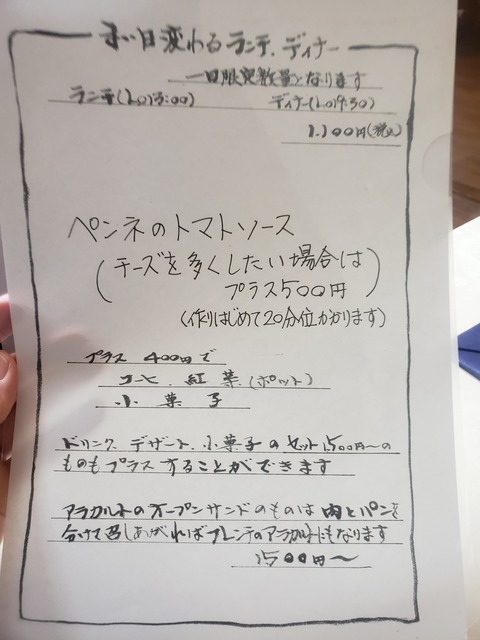 変わるランチ.ディナー
一日限定数量となります
ランチ(L.o13:00) ディナー(L.o19:30)
1.100円(税込)
ペンネのトマトソース
(チーズを多くしたい場合は
プラス500円)
(作りはじめて20分位かかります)
プラス 400円で
コーヒ.紅茶(ポット)
小菓子
ドリンク デザート.小菓子のセット1,500円〜の
ものもプラスすることができます
アラカルトのオープンサンドのものは肉とパンを
分けて召しあがればプレンテのアラカルトにもなります
1500円〜